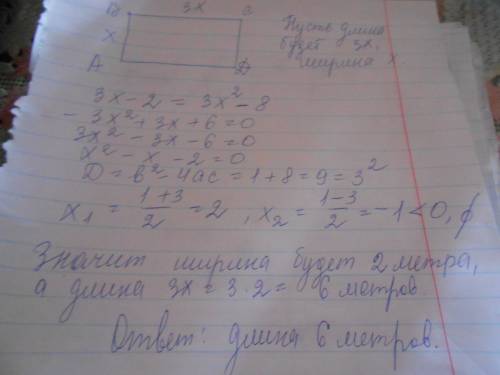 В 3х С
Пусть длина
будет 3х,
х
ширина х.
А Д
3х - 2 = 3х² - 8
- 3х² + 3х + 6 = 0
3х² - 3х - 6 = 0
х² - х - 2 = 0
D = в² - 4ас = 1 + 8 = 9 = 3²
х₁ = (1+3)/2 = 2, х₂ = (1-3)/2 = -1 < 0, ∅
Значит ширина будет 2 метра,
а длина 3х = 3·2 = 6 метров.
Ответ: длина 6 метров.